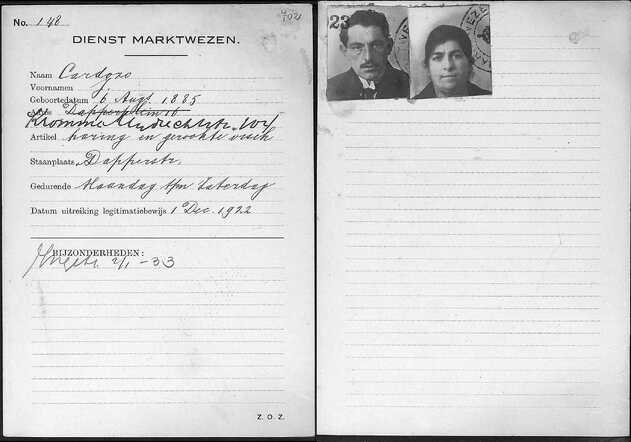 No. 148
DIENST MARKTWEZEN.
Naam Cardozo
Voornamen J.
Geboortedatum 6 Aug. 1885
Dapperplein 10
Kromme Mijdrechtstr. 104
Artikel haring en gerookte visch
Staanplaats Dapperstr.
Gedurende Maandag t/m Zaterdag
Datum uitreiking legitimatiebewijs 1 Dec. 1922
BIJZONDERHEDEN:
2/1 - 33
Z. O. Z.
23